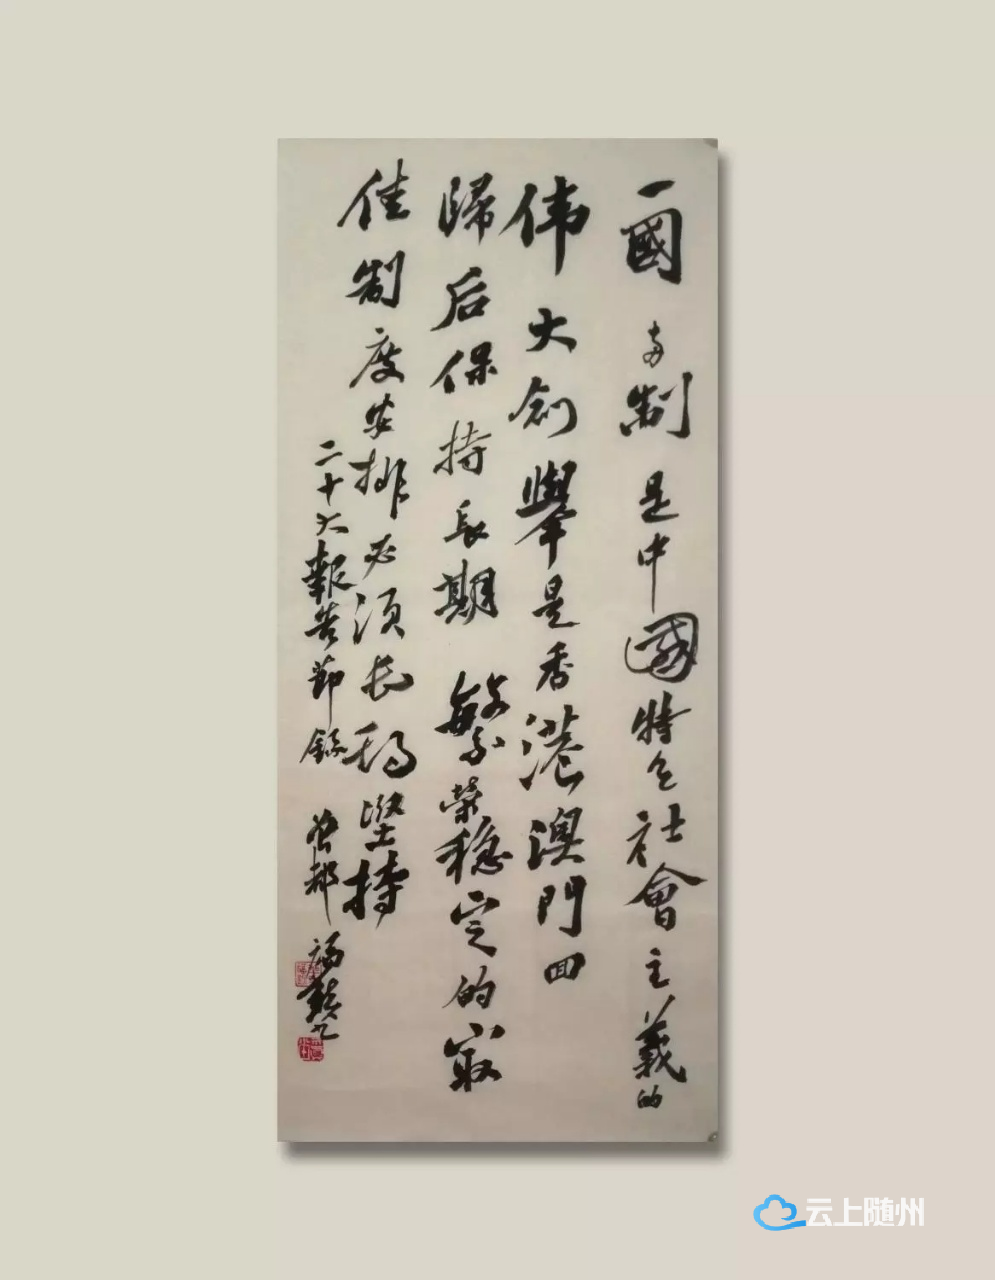 一國两制是中國特色社會主義的
伟大创舉是香港澳門回
歸后保持長期繁荣稳定的最
佳制度安排必须长期坚持
二十大報告節錄
曾都
云上随州